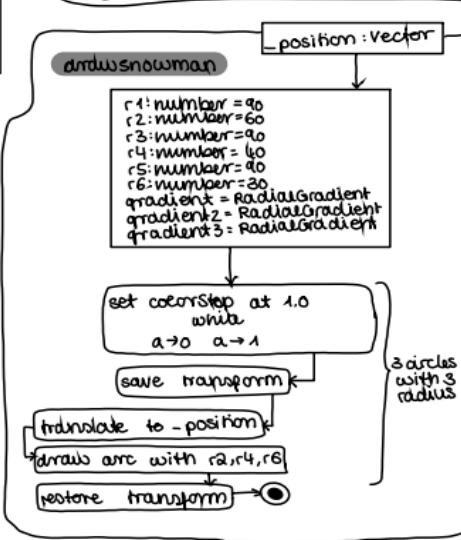 _position : Vector
drawsnowman
r1: number = 90
r2: number = 60
r3: number = 90
r4: number = 40
r5: number = 90
r6: number = 30
gradient = RadialGradient
gradient2 = RadialGradient
gradient3 = RadialGradient
set colorStop at 1.0
white
a→0 a→1
save transform
translate to _position
draw arc with r2, r4, r6
restore transform
3 circles
with 3
radius